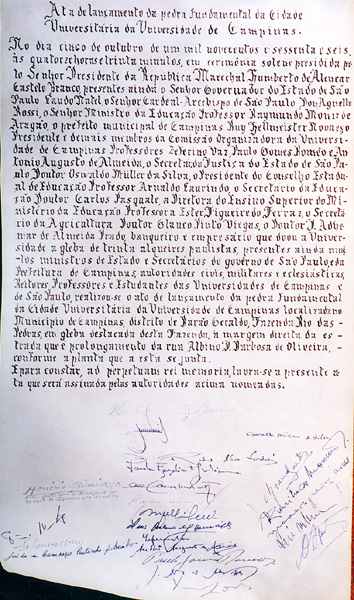 Ata de lançamento da pedra fundamental da Cidade
Universitária da Universidade de Campinas.
No dia cinco de outubro de um mil novecentos e sessenta e seis,
às quatorze horas e trinta minutos, em cerimônia solene presidida pe
lo Senhor Presidente da República Marechal Humberto de Alencar
Castelo Branco, presentes ainda o Senhor Governador do Estado de São
Paulo Laudo Natel, o Senhor Cardeal-Arcebispo de São Paulo Don Agnello
Rossi, o Senhor Ministro da Educação Professor Raymundo Moniz de
Aragão, o prefeito municipal de Campinas Ruy Hellmeister Novaes, o
Presidente e demais membros da Comissão Organizadora da Universi-
dade de Campinas Professores Zeferino Vaz, Paulo Gomes Romeo e An-
tonio Augusto de Almeida, o Secretário da Justiça do Estado de São Pau-
lo Doutor Oswaldo Müller da Silva, o Presidente do Conselho Estadu-
al de Educação Professor Arnaldo Laurindo, o Secretário da Educa-
ção Doutor Carlos Pasquale, a Diretora do Ensino Superior do Mi-
nistério da Educação Professora Ester Figueiredo Ferraz, o Secretá-
rio da Agricultura Doutor Glauco Pinto Viegas, o Doutor J. Adhe-
mar de Almeida Prado, banqueiro e empresário que doou à Universi-
dade a gleba de trinta alqueires paulistas, presentes ainda mui-
tos ministros de Estado e Secretários do governo de São Paulo, e da
Prefeitura de Campinas, autoridades civis, militares e eclesiásticas,
Reitores, Professores e Estudantes das Universidades de Campinas e
de São Paulo, realizou-se o ato de lançamento da pedra fundamental
da Cidade Universitária da Universidade de Campinas localizada no
Município de Campinas, distrito de Barão Geraldo, Fazenda Rio das
Pedras, em gleba destacada desta Fazenda, à margem direita da es-
trada que é prolongamento da rua Albino J. Barbosa de Oliveira,
conforme a planta que a esta se junta.
E para constar, ad perpetuam rei memoriam, lavra-se a presente a-
ta que será assinada pelas autoridades acima nomeadas.